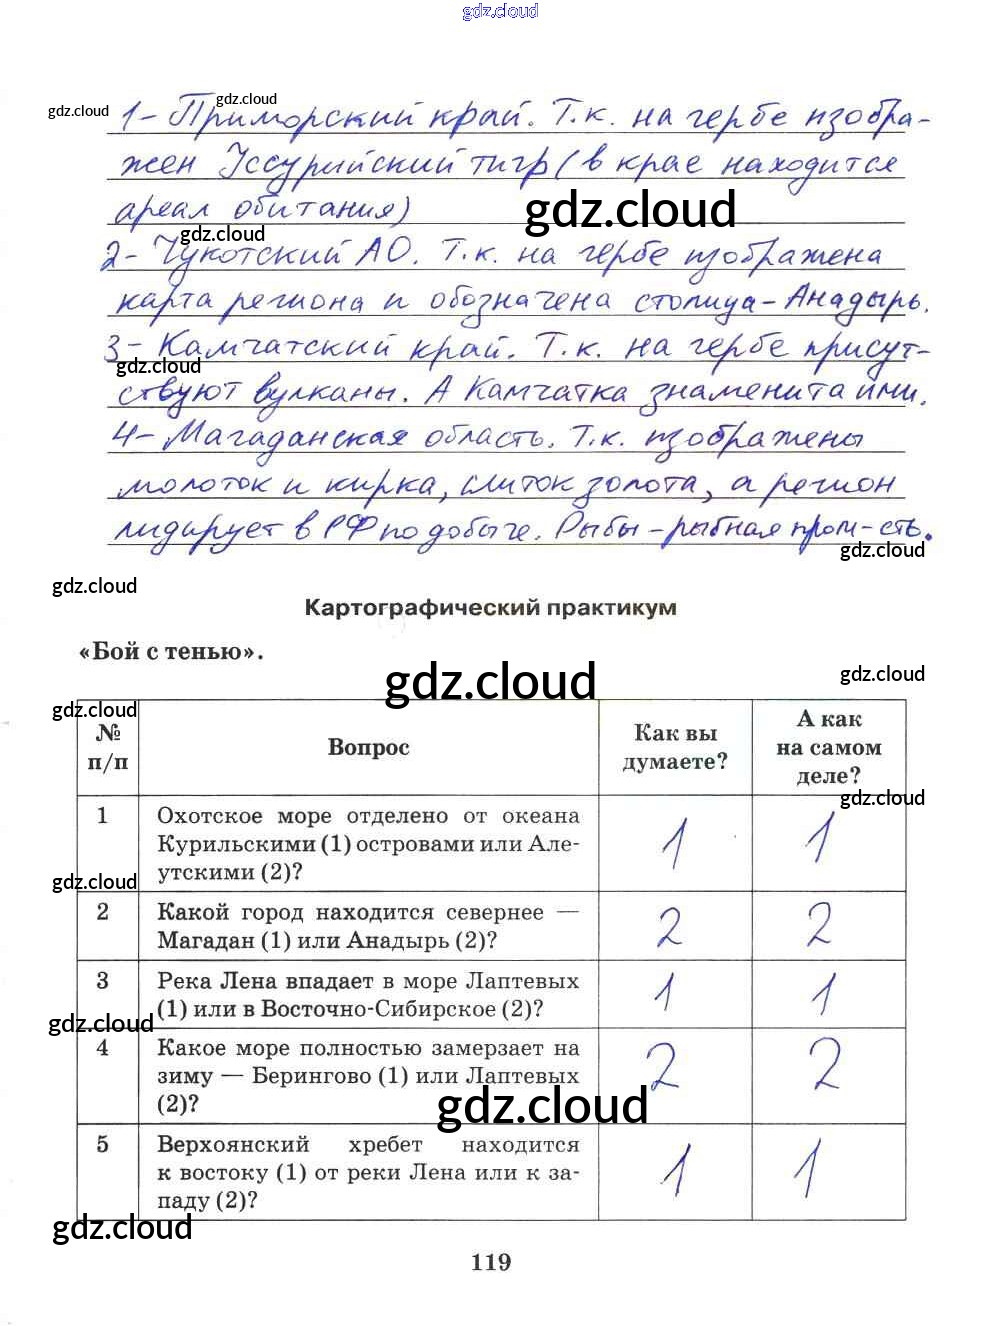 gdz.cloud
gdz.cloud
gdz.cloud
1- Приморский край. Т.к. на гербе изобра-
жен Уссурийский тигр (в крае находится
ареал обитания)
gdz.cloud
gdz.cloud
2- Чукотский АО. Т.к. на гербе изображена
карта региона и обозначена столица - Анадырь.
3- Камчатский край. Т.к. на гербе присут-
gdz.cloud
ствуют вулканы. А Камчатка знаменита ими.
4- Магаданская область. Т.к. изображены
молоток и кирка, слиток золота, а регион
лидирует в РФ по добыче. Рыбы - рыбная пром-сть.
gdz.cloud
gdz.cloud
Картографический практикум
«Бой с тенью».
gdz.cloud
gdz.cloud
gdz.cloud
№ п/п
Вопрос
Как вы думаете?
А как на самом деле?
gdz.cloud
1
Охотское море отделено от океана
Курильскими (1) островами или Але-
утскими (2)?
1
1
gdz.cloud
2
Какой город находится севернее —
Магадан (1) или Анадырь (2)?
2
2
3
Река Лена впадает в море Лаптевых
(1) или в Восточно-Сибирское (2)?
1
1
gdz.cloud
4
Какое море полностью замерзает на
зиму — Берингово (1) или Лаптевых
(2)?
2
2
gdz.cloud
5
Верхоянский хребет находится
к востоку (1) от реки Лена или к за-
паду (2)?
1
1
gdz.cloud
119